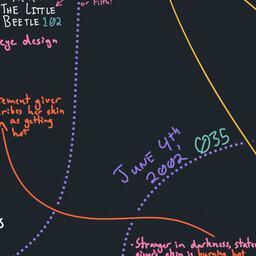 or Filth!
THE LITTLE
BEETLE 102
eye design
ement giver
ribes her skin
as getting
hot
JUNE 4th,
2002
035
• Stranger in darkness, state
givers' skin is burning hot